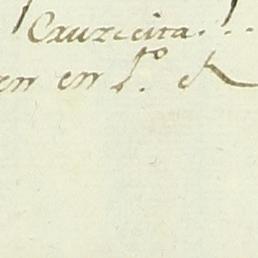 Cruzeita. . .
en en 1.º